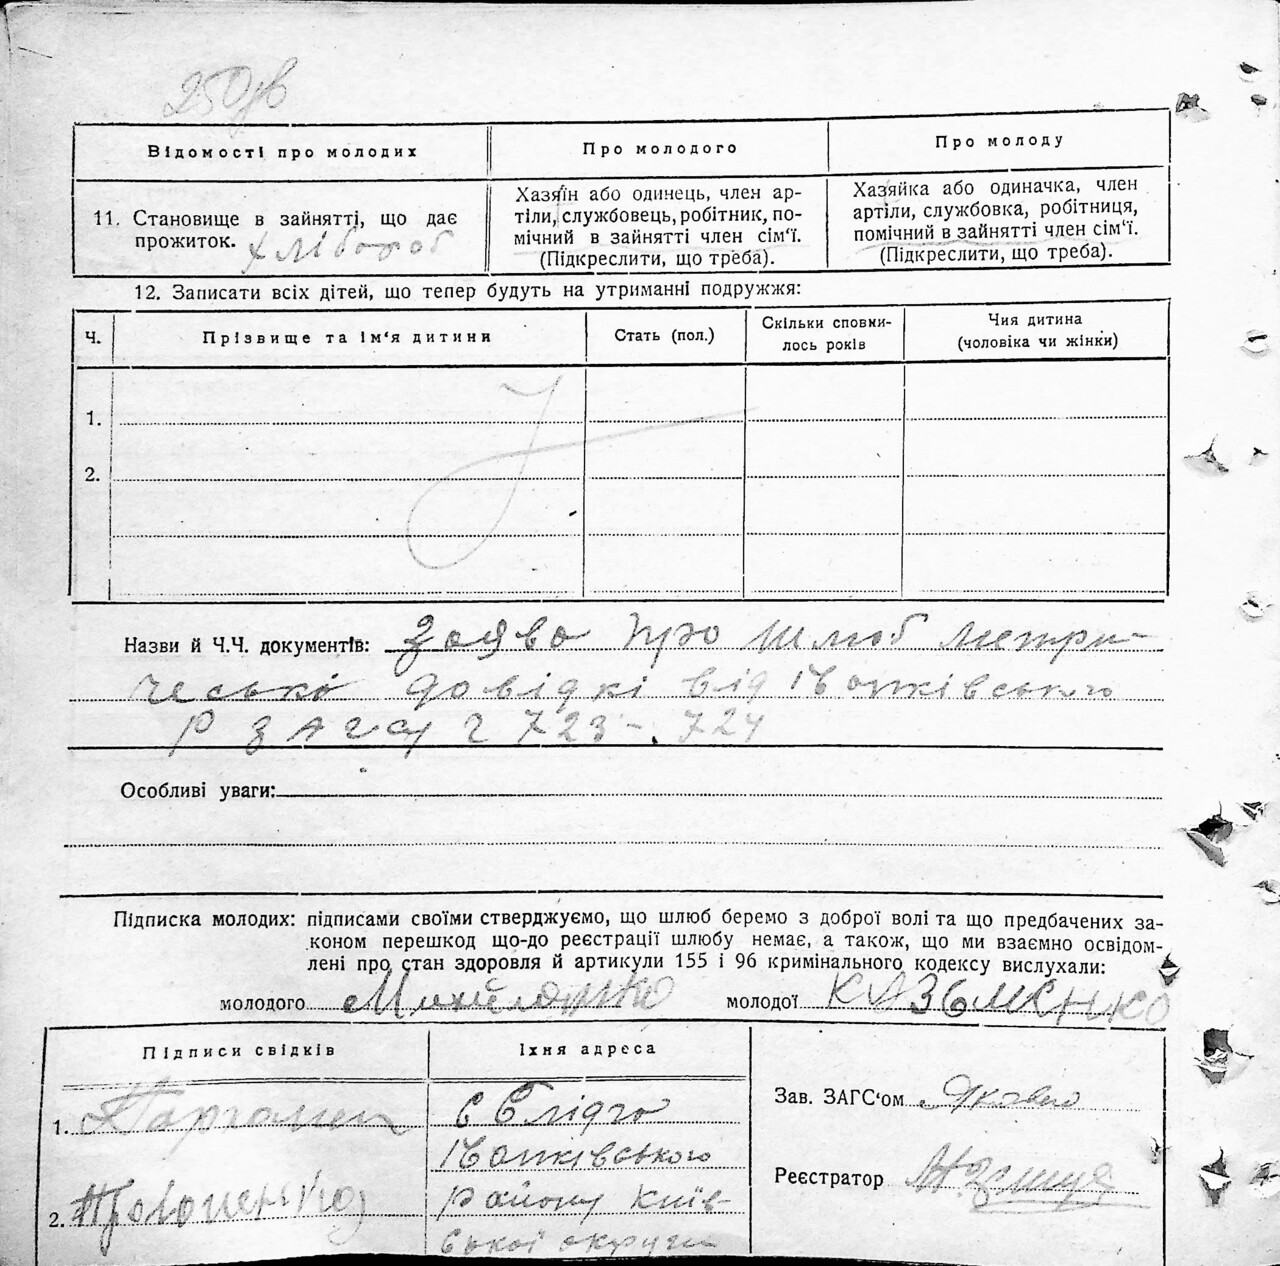 250
Відомості про молодих
Про молодого
Про молоду
11. Становище в зайнятті, що дає
прожиток. Хлібороб
Хазяїн або одинець, член ар-
тіли, службовець, робітник, по-
мічний в зайнятті член сім'ї.
(Підкреслити, що треба).
Хазяйка або одиначка, член
артіли, службовка, робітниця,
помічний в зайнятті член сім'ї.
(Підкреслити, що треба).
12. Записати всіх дітей, що тепер будуть на утриманні подружжя:
Ч.
Прізвище та ім'я дитини
Стать (пол.)
Скільки сповни-
лось років
Чия дитина
(чоловіка чи жінки)
1.
2.
Назви й Ч.Ч. документів: Заява про шлюб метри-
чеські довідкі від
Р ЗАГСу ч 723-724
Особливі уваги:
Підписка молодих: підписами своїми стверджуємо, що шлюб беремо з доброї волі та що предбачених за-
коном перешкод що-до реєстрації шлюбу немає, а також, що ми взаємно освідом-
лені про стан здоровля й артикули 155 і 96 кримінального кодексу вислухали:
молодого
молодої
Підписи свідків
Їхня адреса
1.
2.
районu Київ-
ської округи
Зав. ЗАГС'ом
Реєстратор